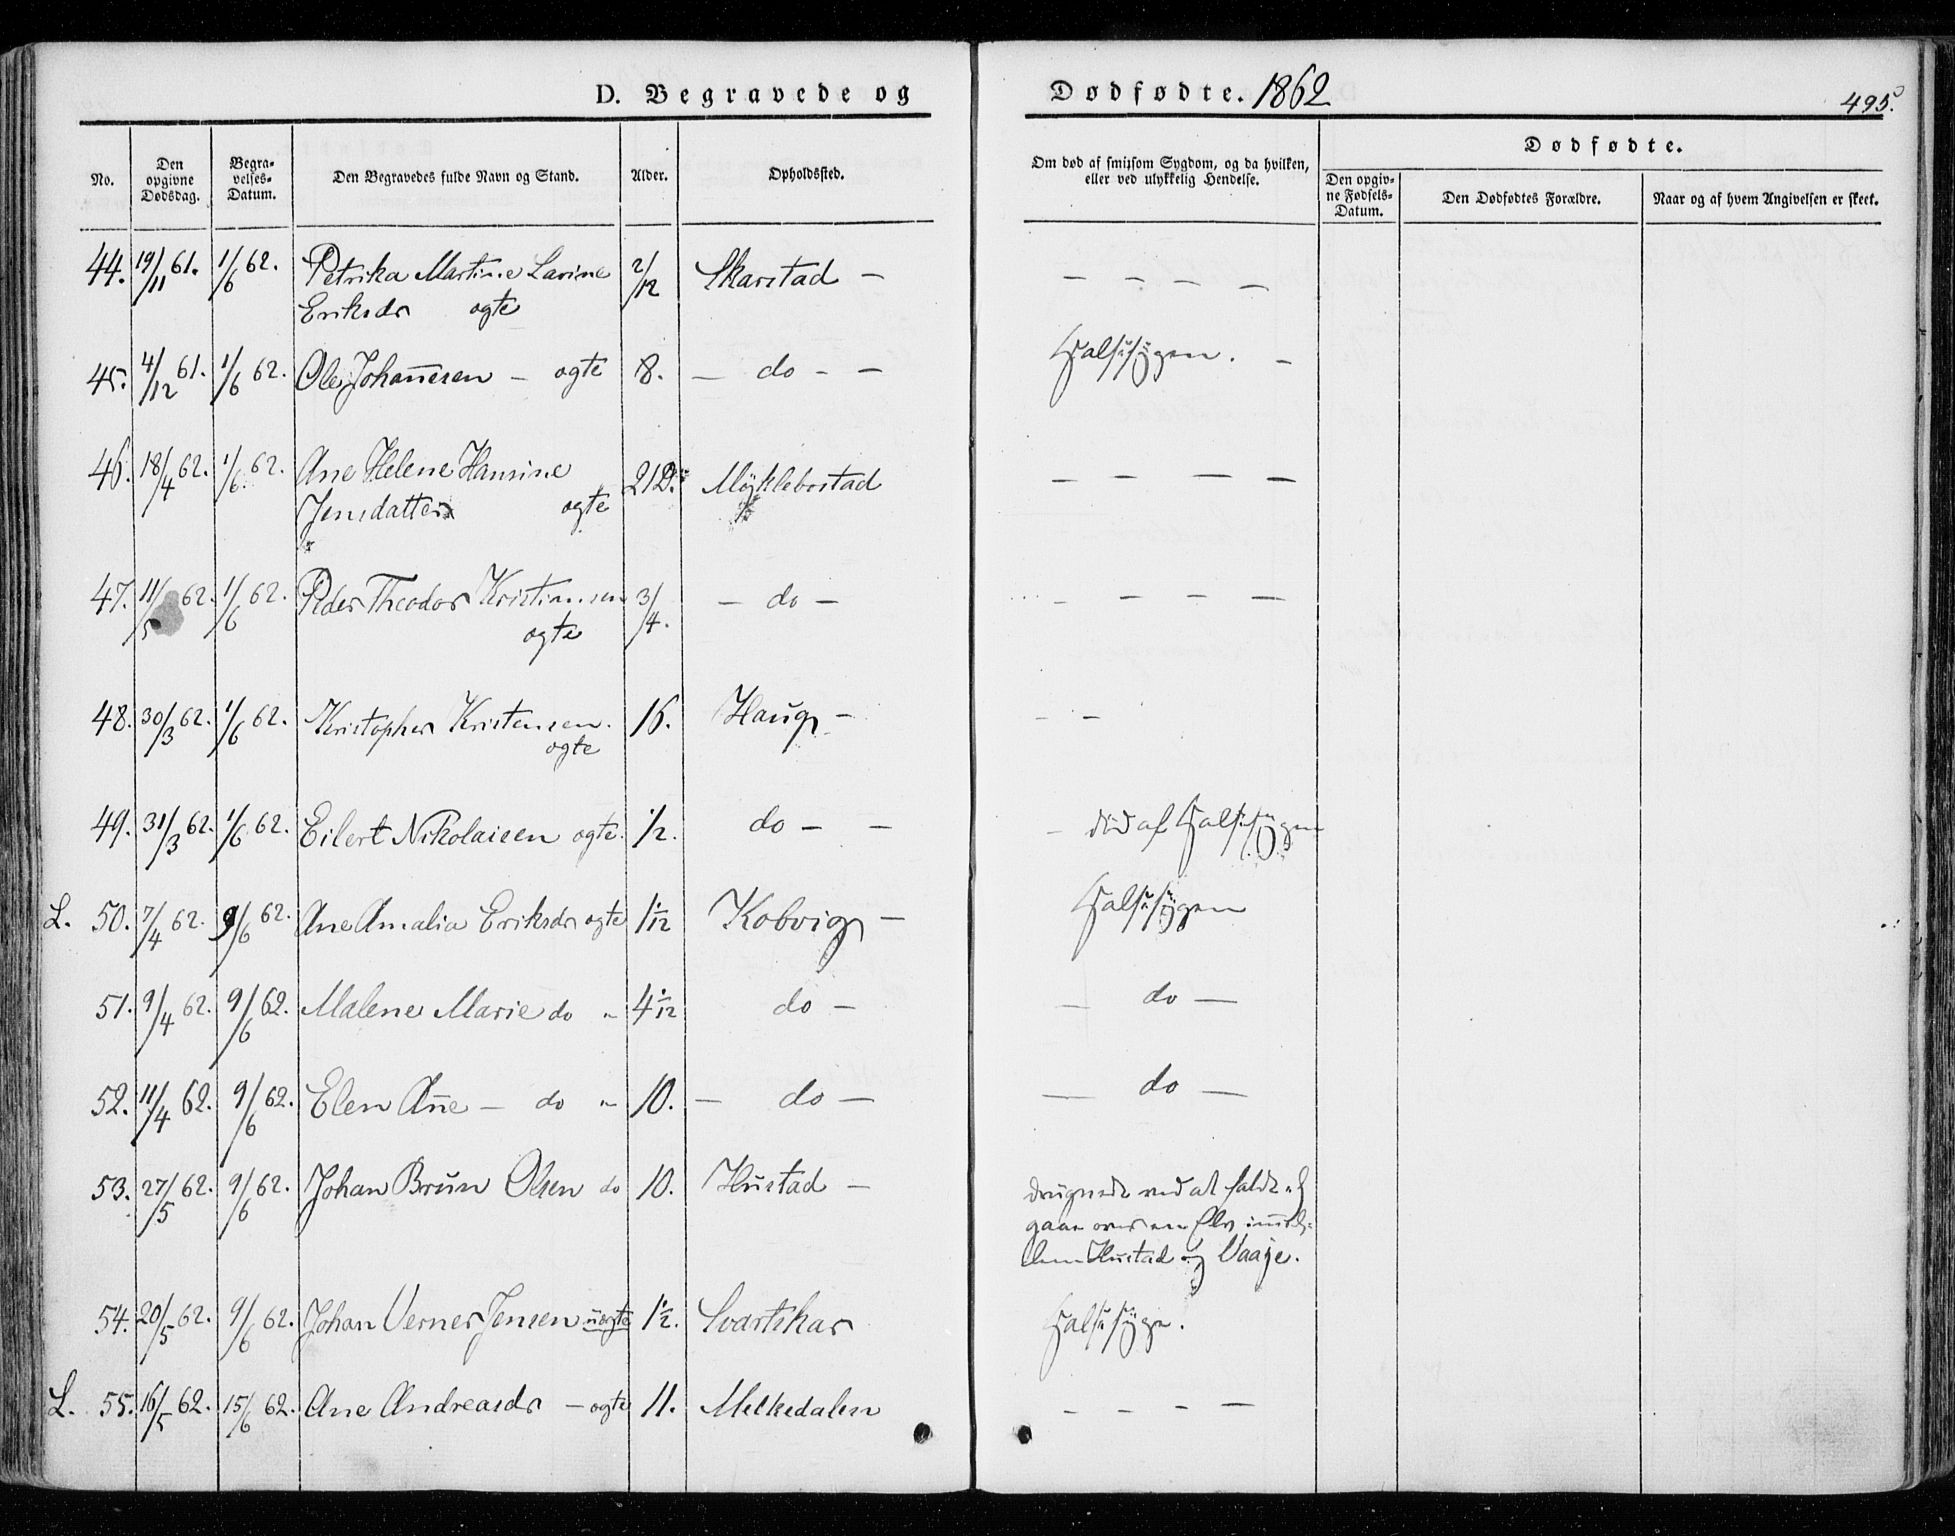 D. Begravede og Dødfødte. 1862
495.
No. Den opgivne Dødsdag. Begravelses-Datum. Den Begravedes fulde Navn og Stand. Alder. Opholdssted. Om død af smitsom Sygdom, og da hvilken, eller ved ulykkelig Hendelse. Dødfødte. Den opgivne Fødsels-Datum. Den Dødfødtes Forældre. Naar og af hvem Angivelsen er skeet.
44. 19/11 61. 1/6 62. Petrika Martine Lavine 2/12 Skarstad — — — — —
Eriksdr ogte
45. 4/12 61. 1/6 62. Ole Johan̄esen – ogte 8. — do - — Halssygen. –
46. 18/4 62. 1/6 62. Ane Helene Hansine 21D. Møklebostad — — — —
Jensdatter ogte
47. 11/5 62. 1/6 62. Peder Theodor Kristiansen 3/4. — do — — — — —
ogte
48. 30/3 62. 1/6 62. Kristopher Kristensen. 16. Haug — — —
ogte
49. 31/3 62. 1/6 62. Eilert Nikolaisen ogte. 1/2. do — — — død af Halssygen
L. 50. 7/4 62. 9/6 62. Ane Amalia Eriksdr ogte 1 1/12 Kobvig — Halssygen
51. 9/4 62. 9/6 62. Malene Marie do " 4 1/12 do — — do —
52. 11/4 62. 9/6 62. Elen An̄e — do " 10. — do — — do —
53. 27/5 62. 9/6 62. Johan Brun Olsen do 10. Hustad — druknede ved at falde
gaae over en Elv im̄el-
lem Hustad og Vaaje.
54. 20/5 62. 9/6 62. Johan Verner Jensen uogte 1 1/2. Svartskar Halssyge.
L. 55. 16/5 62. 15/6 62. Ane Andreasdr — ogte 11. Melkedalen — — — —